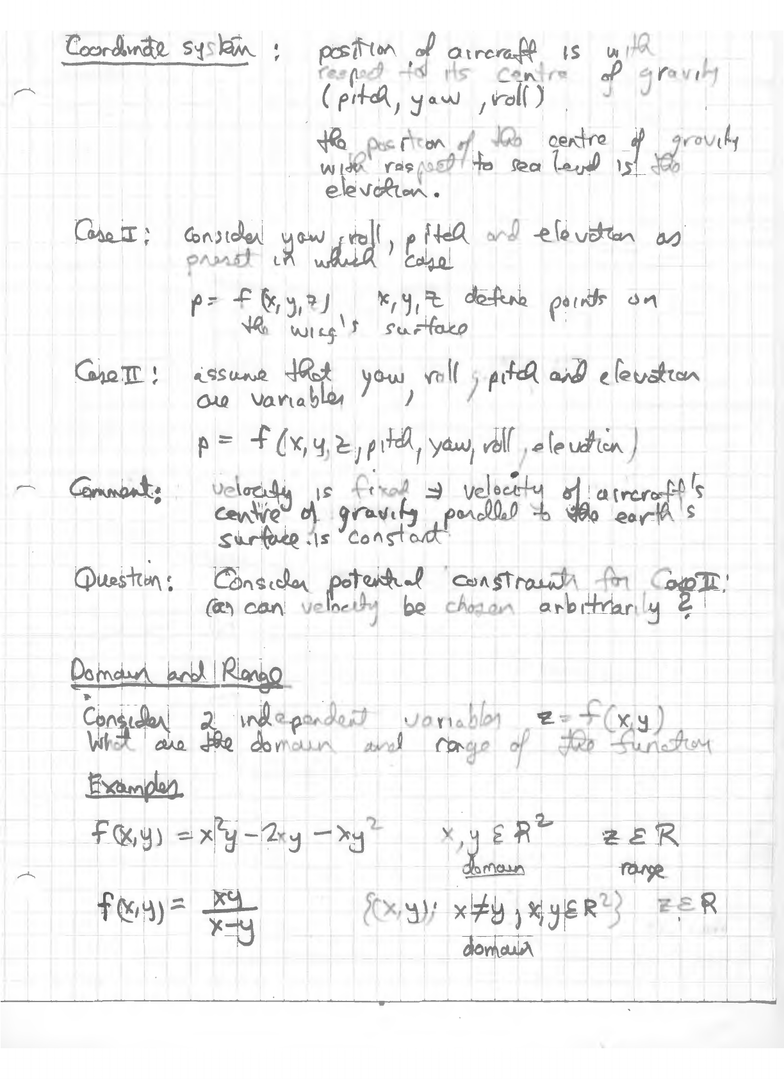 Coordinate system : position of aircraft is with
respect to its centre of gravity
(pitch, yaw, roll)
the position of the centre of gravity
with respect to sea level is the
elevation.
Case I : consider yaw, roll, pitch and elevation as
preset in which case
p = f(x, y, z) x, y, z define points on
the wing's surface
Case II : assume that yaw, roll, pitch and elevation
are variables
p = f(x, y, z, pitch, yaw, roll, elevation)
Comment: velocity is fixed ⇒ velocity of aircraft's
centre of gravity parallel to the earth's
surface is constant
Question: Consider potential constraints for Case II:
(a) can velocity be chosen arbitrarily ?
Domain and Range
Consider 2 independent variables z = f(x, y)
What are the domain and range of the function
Examples
f(x,y) = x²y - 2xy - xy² x, y ε R² z ε R
domain range
f(x,y) = xy/(x-y) {(x,y); x≠y, x,y ε R²} z ε R
domain